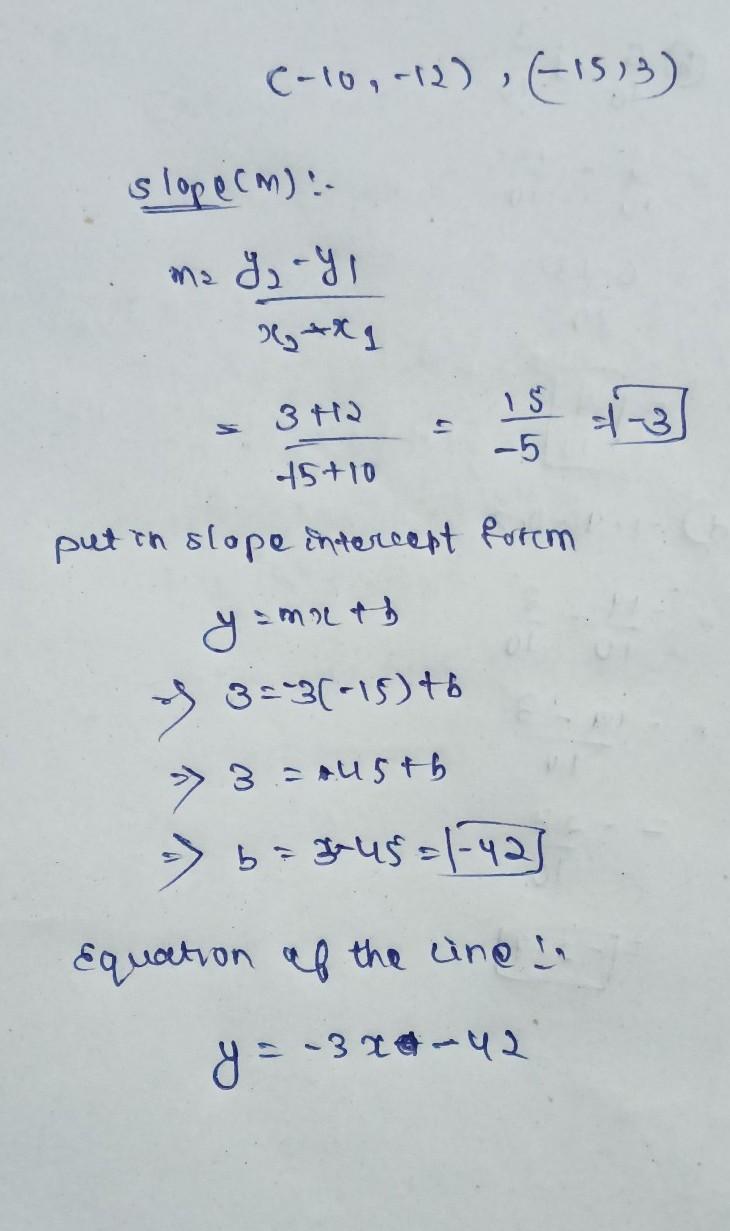 (-10, -12) , (-15,3)
slope(m) :-
m = y₂ - y₁
x₂ - x₁
= 3 +12 = 15 = -3
-15+10 -5
put in slope intercept form
y = mx + b
⇒ 3 = -3(-15) + b
⇒ 3 = 45 + b
⇒ b = 3-45 = -42
Equation of the line :-
y = -3x - 42